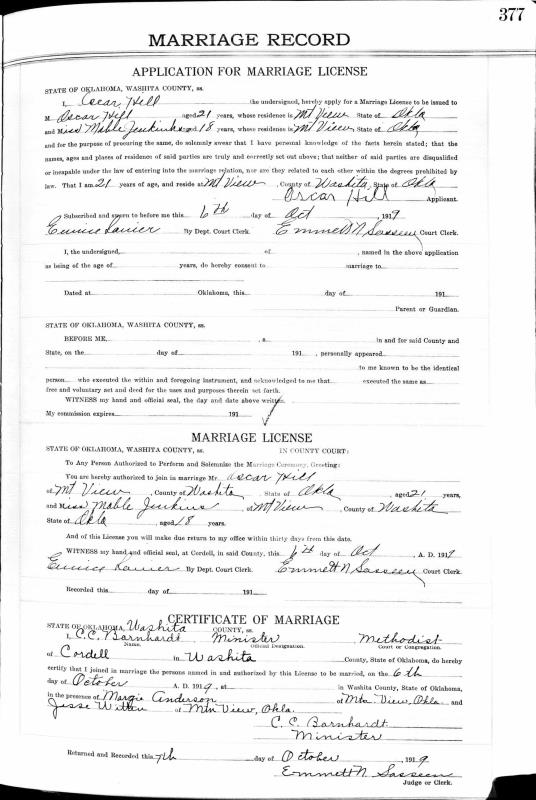 377
MARRIAGE RECORD
APPLICATION FOR MARRIAGE LICENSE
STATE OF OKLAHOMA, WASHITA COUNTY, ss.
I, Oscar Hill the undersigned, hereby apply for a Marriage License to be issued to
M Oscar Hill aged 21 years, whose residence is Mt View State of Okla
and Miss Mable Jenkins aged 18 years, whose residence is Mt View State of Okla
and for the purpose of procuring the same, do solemnly swear that I have personal knowledge of the facts herein stated; that the
names, ages and places of residence of said parties are truly and correctly set out above; that neither of said parties are disqualified
or incapable under the law of entering into the marriage relation, nor are they related to each other within the degrees prohibited by
law. That I am 21 years of age, and reside at Mt View, County of Washita, State of Okla
Oscar Hill Applicant.
Subscribed and sworn to before me this 6th day of Oct 1919
Eunice Lanier By Dept. Court Clerk. Emmett N Sasseen Court Clerk.
I, the undersigned, of , named in the above application
as being of the age of years, do hereby consent to marriage to
Dated at Oklahoma, this day of 191
Parent or Guardian.
STATE OF OKLAHOMA, WASHITA COUNTY, ss.
BEFORE ME, , a in and for said County and
State, on the day of 191 , personally appeared
to me known to be the identical
person who executed the within and foregoing instrument, and acknowledged to me that executed the same as
free and voluntary act and deed for the uses and purposes therein set forth.
WITNESS my hand and official seal, the day and date above written.
My commission expires 191
MARRIAGE LICENSE
STATE OF OKLAHOMA, WASHITA COUNTY, ss. IN COUNTY COURT:
To Any Person Authorized to Perform and Solemnize the Marriage Ceremony, Greeting:
You are hereby authorized to join in marriage Mr. Oscar Hill
of Mt View, County of Washita State of Okla aged 21 years,
and Miss Mable Jenkins of Mt View, County of Washita
State of Okla aged 18 years.
And of this License you will make due return to my office within thirty days from this date.
WITNESS my hand and official seal, at Cordell, in said County, this 6th day of Oct , A. D. 1919
Eunice Lanier By Dept. Court Clerk. Emmett N Sasseen Court Clerk.
Recorded this day of 191
CERTIFICATE OF MARRIAGE
STATE OF OKLAHOMA, Washita COUNTY, ss.
I, C.C. Barnhardt Minister Methodist
Name. Official Designation. Court or Congregation.
of Cordell in Washita County, State of Oklahoma, do hereby
certify that I joined in marriage the persons named in and authorized by this License to be married, on the 6th
day of October A. D. 1919, at in Washita County, State of Oklahoma,
in the presence of Margie Anderson of Mtn View, Okla. and
Jesse Witten of Mtn View, Okla.
C. C. Barnhardt
Minister
Returned and Recorded this 7th day of October , 1919
Emmett N. Sasseen
Judge or Clerk.